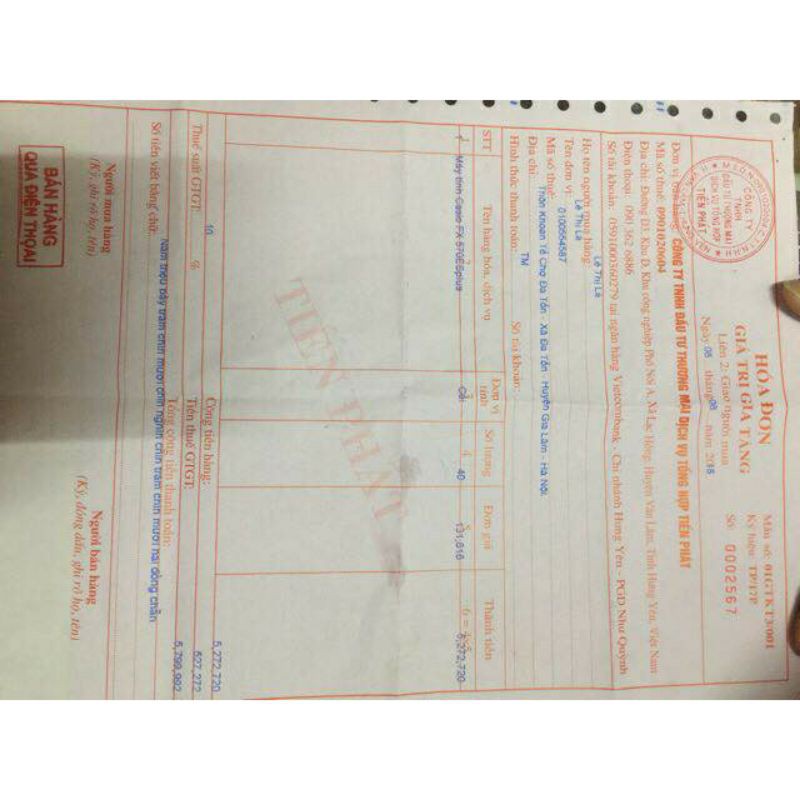 HÓA ĐƠN
GIÁ TRỊ GIA TĂNG
Liên 2: Giao người mua
Ngày 08 tháng 08 năm 20
Mẫu số: 01GTKT3/001
Ký hiệu: TP/17P
Số: 0002567
CÔNG TY
TNHH
ĐẦU TƯ THƯƠNG MẠI
DỊCH VỤ TỔNG HỢP
TIẾN PHÁT
Đơn vị bán hàng: CÔNG TY TNHH ĐẦU TƯ THƯƠNG MẠI DỊCH VỤ TỔNG HỢP TIẾN PHÁT
Mã số thuế: 0901020604
Địa chỉ: Đường D3, Khu D, Khu công nghiệp Phố Nối A, Xã Lạc Hồng, Huyện Văn Lâm, Tỉnh Hưng Yên, Việt Nam
Điện thoại: 0981 362 6886
Số tài khoản: 0591000360279 tại ngân hàng Vietcombank - Chi nhánh Hưng Yên - PGD Như Quỳnh
Họ tên người mua hàng: Lê Thị Là
Tên đơn vị: Lê Thị Là
Mã số thuế: 0100554587
Địa chỉ: Thôn Khoan Tế Chợ Đa Tốn - Xã Đa Tốn - Huyện Gia Lâm - Hà Nội.
Hình thức thanh toán: TM Số tài khoản:
STT Tên hàng hóa, dịch vụ Đơn vị tính Số lượng Đơn giá Thành tiền
4 5 6 = 4x5
1 Máy tính Casio FX 570ESplus Cái 40 131,818 5,272,720
TIẾN PHÁT
Cộng tiền hàng: 5,272,720
Thuế suất GTGT: 10 % Tiền thuế GTGT: 527,272
Tổng cộng tiền thanh toán: 5,799,992
Số tiền viết bằng chữ: Năm triệu bảy trăm chín mươi chín nghìn chín trăm chín mươi hai đồng chẵn
Người mua hàng Người bán hàng
(Ký, ghi rõ họ, tên) (Ký, đóng dấu, ghi rõ họ, tên)
BÁN HÀNG
QUA ĐIỆN THOẠI